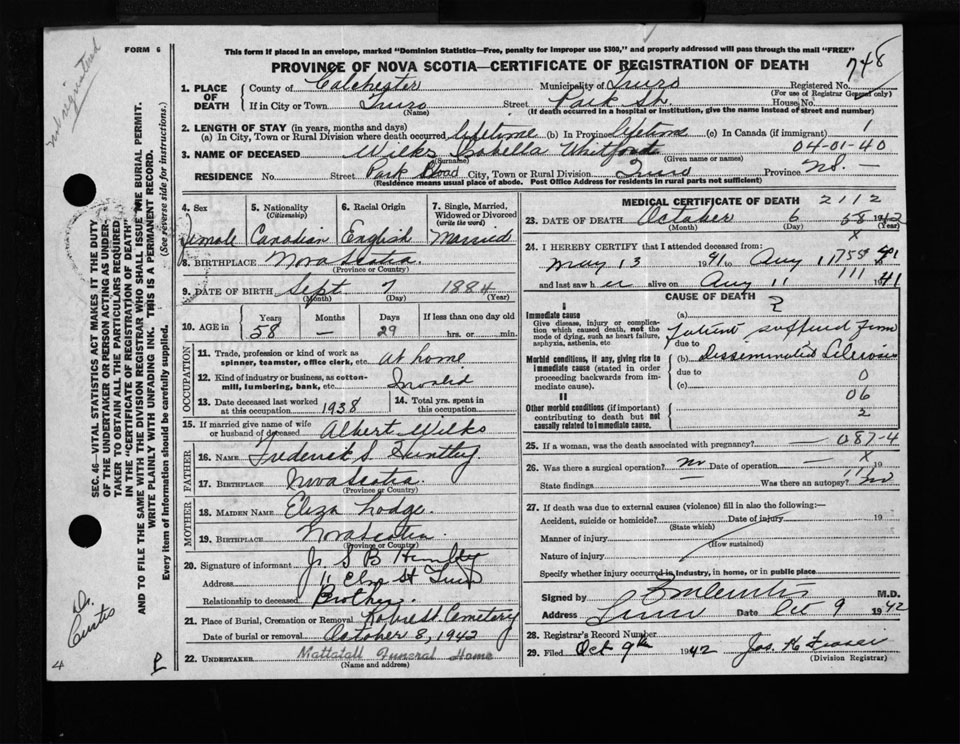 FORM 6
This form if placed in an envelope, marked "Dominion Statistics—Free, penalty for improper use $300," and properly addressed will pass through the mail "FREE"
PROVINCE OF NOVA SCOTIA—CERTIFICATE OF REGISTRATION OF DEATH
748
1. PLACE OF DEATH
County of Colchester Municipality of Truro Registered No.
(For use of Registrar General only)
If in City or Town Truro Street Park St. House No.
(Name) (If death occurred in a hospital or institution, give the name instead of street and number)
2. LENGTH OF STAY (in years, months and days)
(a) In City, Town or Rural Division where death occurred lifetime (b) in Province lifetime (c) In Canada (if immigrant) 1
04-01-40
3. NAME OF DECEASED Wilks Isabella Whitford
(Surname) (Given name or names)
RESIDENCE No. Street Park Road City, Town or Rural Division Truro Province N.S. —
(Residence means usual place of abode. Post Office Address for residents in rural parts not sufficient)
4. Sex Female
5. Nationality (Citizenship) Canadian
6. Racial Origin English
7. Single, Married, Widowed or Divorced (write the word) Married
8. BIRTHPLACE Nova Scotia
(Province or Country)
9. DATE OF BIRTH Sept 7 1884
(Month) (Day) (Year)
10. AGE in Years 58 Months — Days 29 If less than one day old hrs. or min.
OCCUPATION
11. Trade, profession or kind of work as spinner, teamster, office clerk, etc. At home
12. Kind of industry or business, as cotton-mill, lumbering, bank, etc. Invalid
13. Date deceased last worked at this occupation 1938
14. Total yrs. spent in this occupation
15. If married give name of wife or husband of deceased Albert Wilks
FATHER
16. NAME Frederick S Huntley
17. BIRTHPLACE Nova Scotia
(Province or Country)
MOTHER
18. MAIDEN NAME Eliza Lodge
19. BIRTHPLACE Nova Scotia
(Province or Country)
20. Signature of informant S B Huntley
Address 11 Elm St Truro
Relationship to deceased Brother.
21. Place of Burial, Cremation or Removal Robie St Cemetery
Date of burial or removal October 8, 1942
22. UNDERTAKER Mattatall Funeral Home
(Name and address)
MEDICAL CERTIFICATE OF DEATH 2112
23. DATE OF DEATH October 6 58 1942
(Month) (Day) (Year)
X
24. I HEREBY CERTIFY that I attended deceased from:
May 13 1941 to Aug 11 1941
and last saw her alive on Aug 11 1941
CAUSE OF DEATH
I
Immediate cause
Give disease, injury or complication which caused death, not the mode of dying, such as heart failure, asphyxia, asthenia, etc.
(a) Patient suffered from
due to
Morbid conditions, if any, giving rise to immediate cause (stated in order proceeding backwards from immediate cause).
(b) Disseminated Sclerosis
due to 0
(c) 06
II
Other morbid conditions (if important) contributing to death but not causally related to immediate cause.
2
25. If a woman, was the death associated with pregnancy? — 087-4
26. Was there a surgical operation? no Date of operation — X 19
State findings — Was there an autopsy? no
27. If death was due to external causes (violence) fill in also the following:—
Accident, suicide or homicide? Date of injury 19
(State which)
Manner of injury
(How sustained)
Nature of injury
Specify whether injury occurred in industry, in home, or in public place
Signed by M.D.
Address Truro Date Oct 9 1942
28. Registrar's Record Number
29. Filed Oct 9th 1942 Jas. H Fraser
(Division Registrar)
SEC. 46—VITAL STATISTICS ACT MAKES IT THE DUTY
OF THE UNDERTAKER OR PERSON ACTING AS UNDER-
TAKER TO OBTAIN ALL THE PARTICULARS REQUIRED
IN THE "CERTIFICATE OF REGISTRATION OF DEATH"
AND TO FILE THE SAME WITH THE DIVISION REGISTRAR WHO SHALL ISSUE THE BURIAL PERMIT.
WRITE PLAINLY WITH UNFADING INK. THIS IS A PERMANENT RECORD.
Every item of information should be carefully supplied. (See reverse side for instructions.)
Dr. Curtis
4